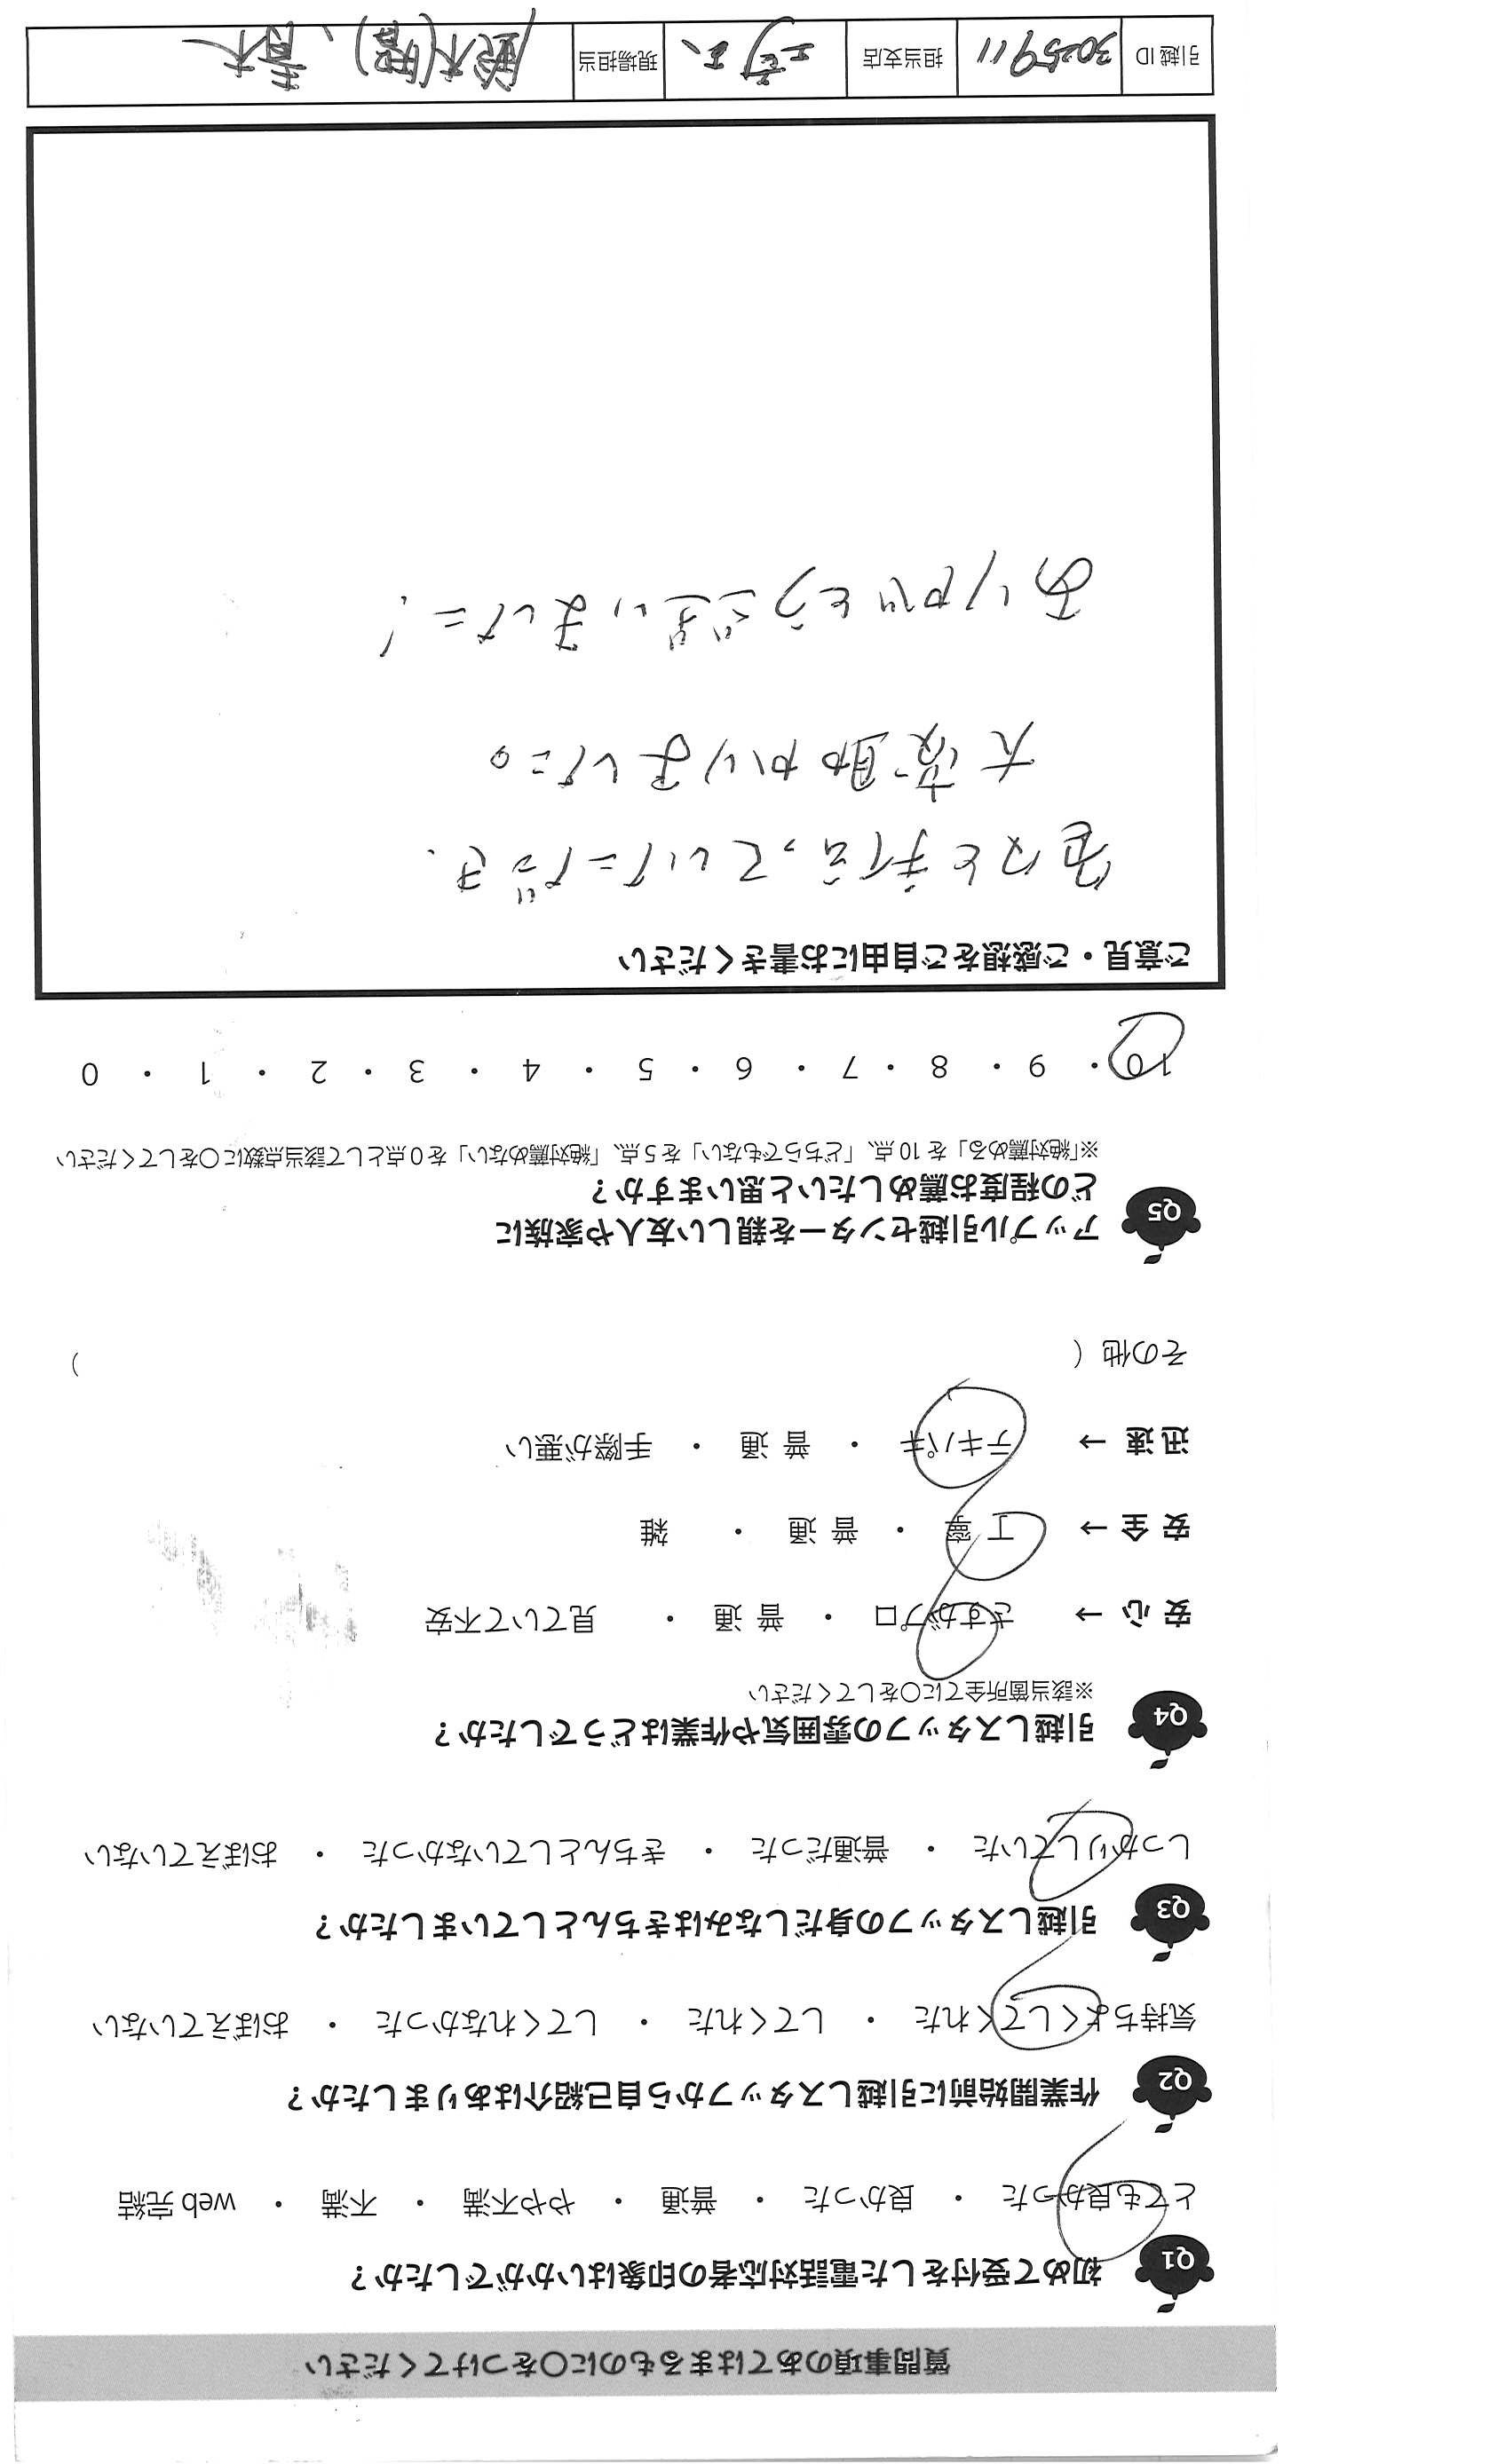 質問事項のあてはまるものに〇をつけてください
Q1 初めて受付をした電話対応者の印象はいかがでしたか？
とても良かった ・ 良かった ・ 普通 ・ やや不満 ・ 不満 ・ web 完結
Q2 作業開始前に引越しスタッフから自己紹介はありましたか？
気持ちよくしてくれた ・ してくれた ・ してくれなかった ・ おぼえていない
Q3 引越しスタッフの身だしなみはきちんとしていましたか？
しっかりしていた ・ 普通だった ・ きちんとしていなかった ・ おぼえていない
Q4 引越しスタッフの雰囲気や作業はどうでしたか？
※該当箇所全てに〇をしてください
安心 → さすがプロ ・ 普通 ・ 見ていて不安
安全 → 丁寧 ・ 普通 ・ 雑
迅速 → テキパキ ・ 普通 ・ 手際が悪い
その他（ ）
Q5 アップル引越センターを親しい友人や家族に
どの程度お薦めしたいと思いますか？
※「絶対薦める」を 10 点、「どちらでもない」を 5 点、「絶対薦めない」を 0 点として該当点数に〇をしてください
10 ・ 9 ・ 8 ・ 7 ・ 6 ・ 5 ・ 4 ・ 3 ・ 2 ・ 1 ・ 0
ご意見・ご感想をご自由にお書きください
色々と手伝っていただき、
大変助かりました。
ありがとうございました！
引越 ID 3025911 担当支店 現場担当 鈴木( )、青木